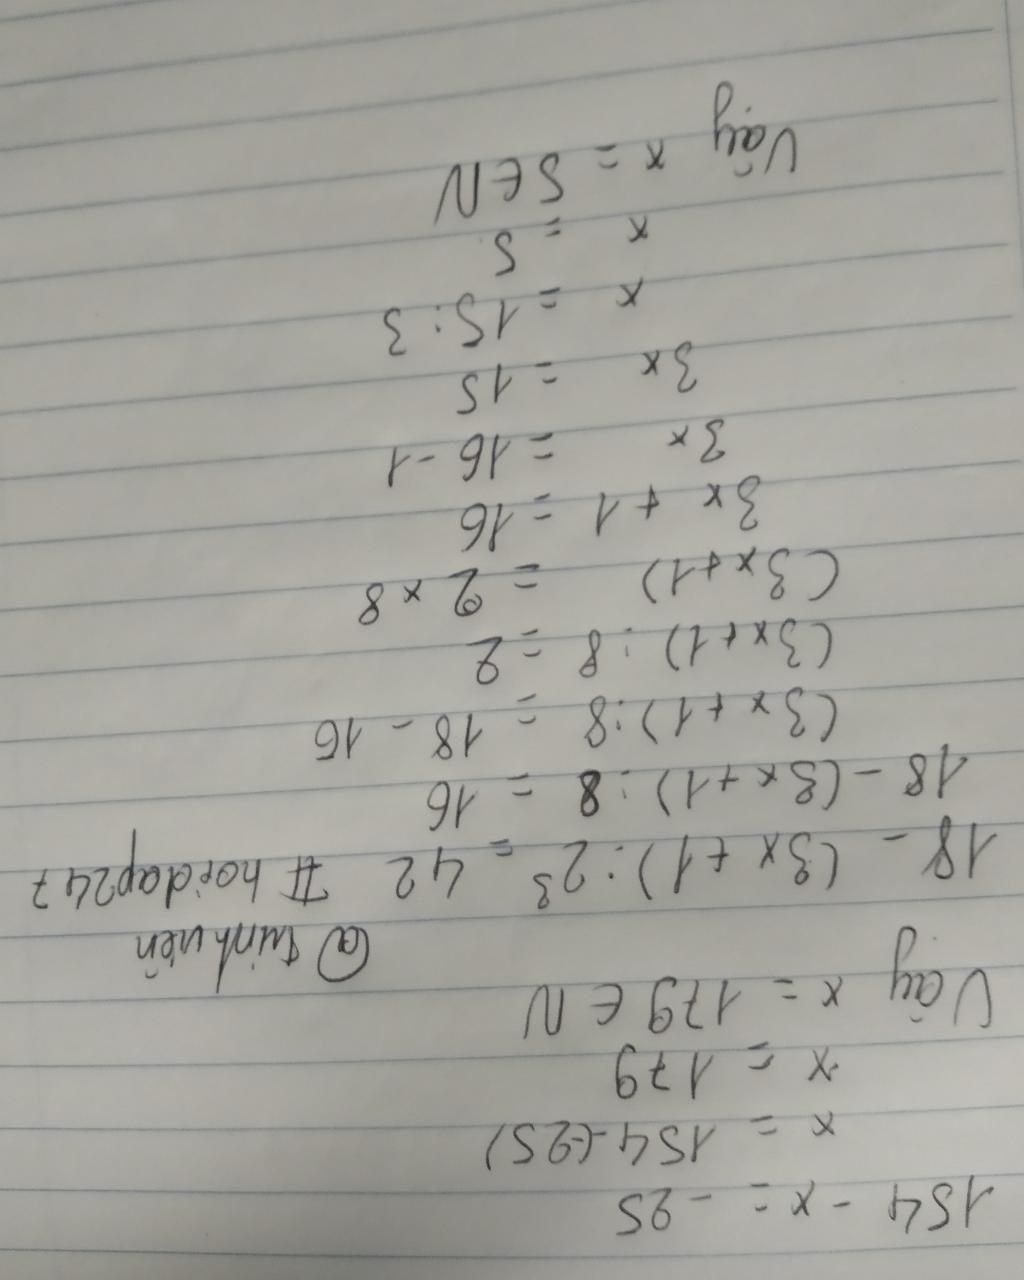 154 - x = - 25
x = 154-(-25)
x = 179
Vậy x = 179 ∈ N
@ trinhuyên
18 - (3x + 1) : 2³ = 42 # hoidap247
18 - (3x + 1) : 8 = 16
(3x + 1) : 8 = 18 - 16
(3x + 1) : 8 = 2
(3x + 1) = 2 x 8
3x + 1 = 16
3x = 16 - 1
3x = 15
x = 15 : 3
x = 5
Vậy x = 5 ∈ N